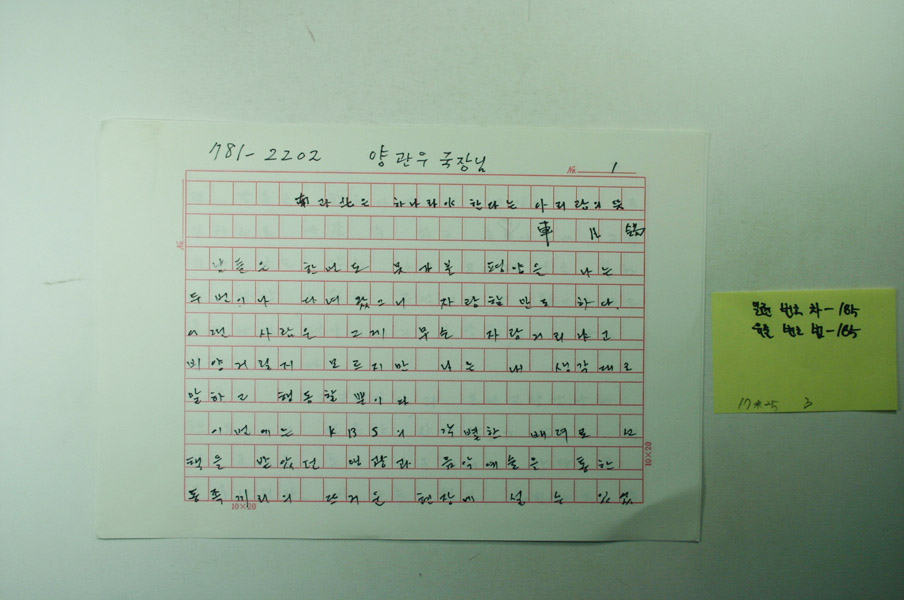 781-2202 양관우 국장님
No. 1
하나라야 한다는 아리랑의 뜻
車 凡 錫
남들은 한번도 못 가본 평양을 나는
두 번이나 다녀 왔으니 자랑할 만도 하다.
어떤 사람은 그게 무슨 자랑거리냐고
비양거릴지 모르지만 나는 내 생각대로
말하고 행동할 뿐이다
이번에는 KBS의 각별한 배려로 초
청을 받았던 영광과 음악예술을 통한
동족끼리의 뜨거운 현장에 설 수 있었
10×20
10×20
번호 차-165
번호 범-165
17*25 3